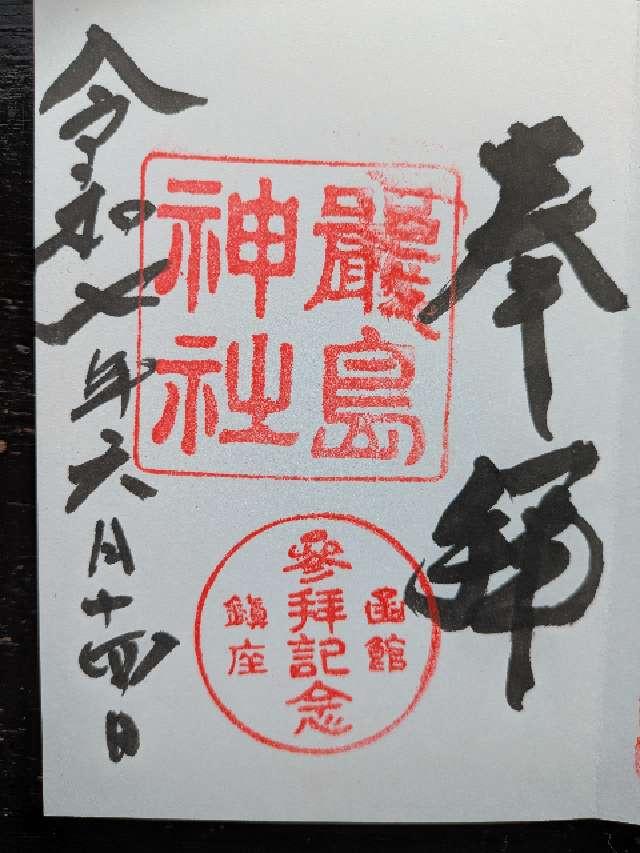 奉拝
嚴島
神社
函館
参拝記念
鎮座
令和七年六月十四日